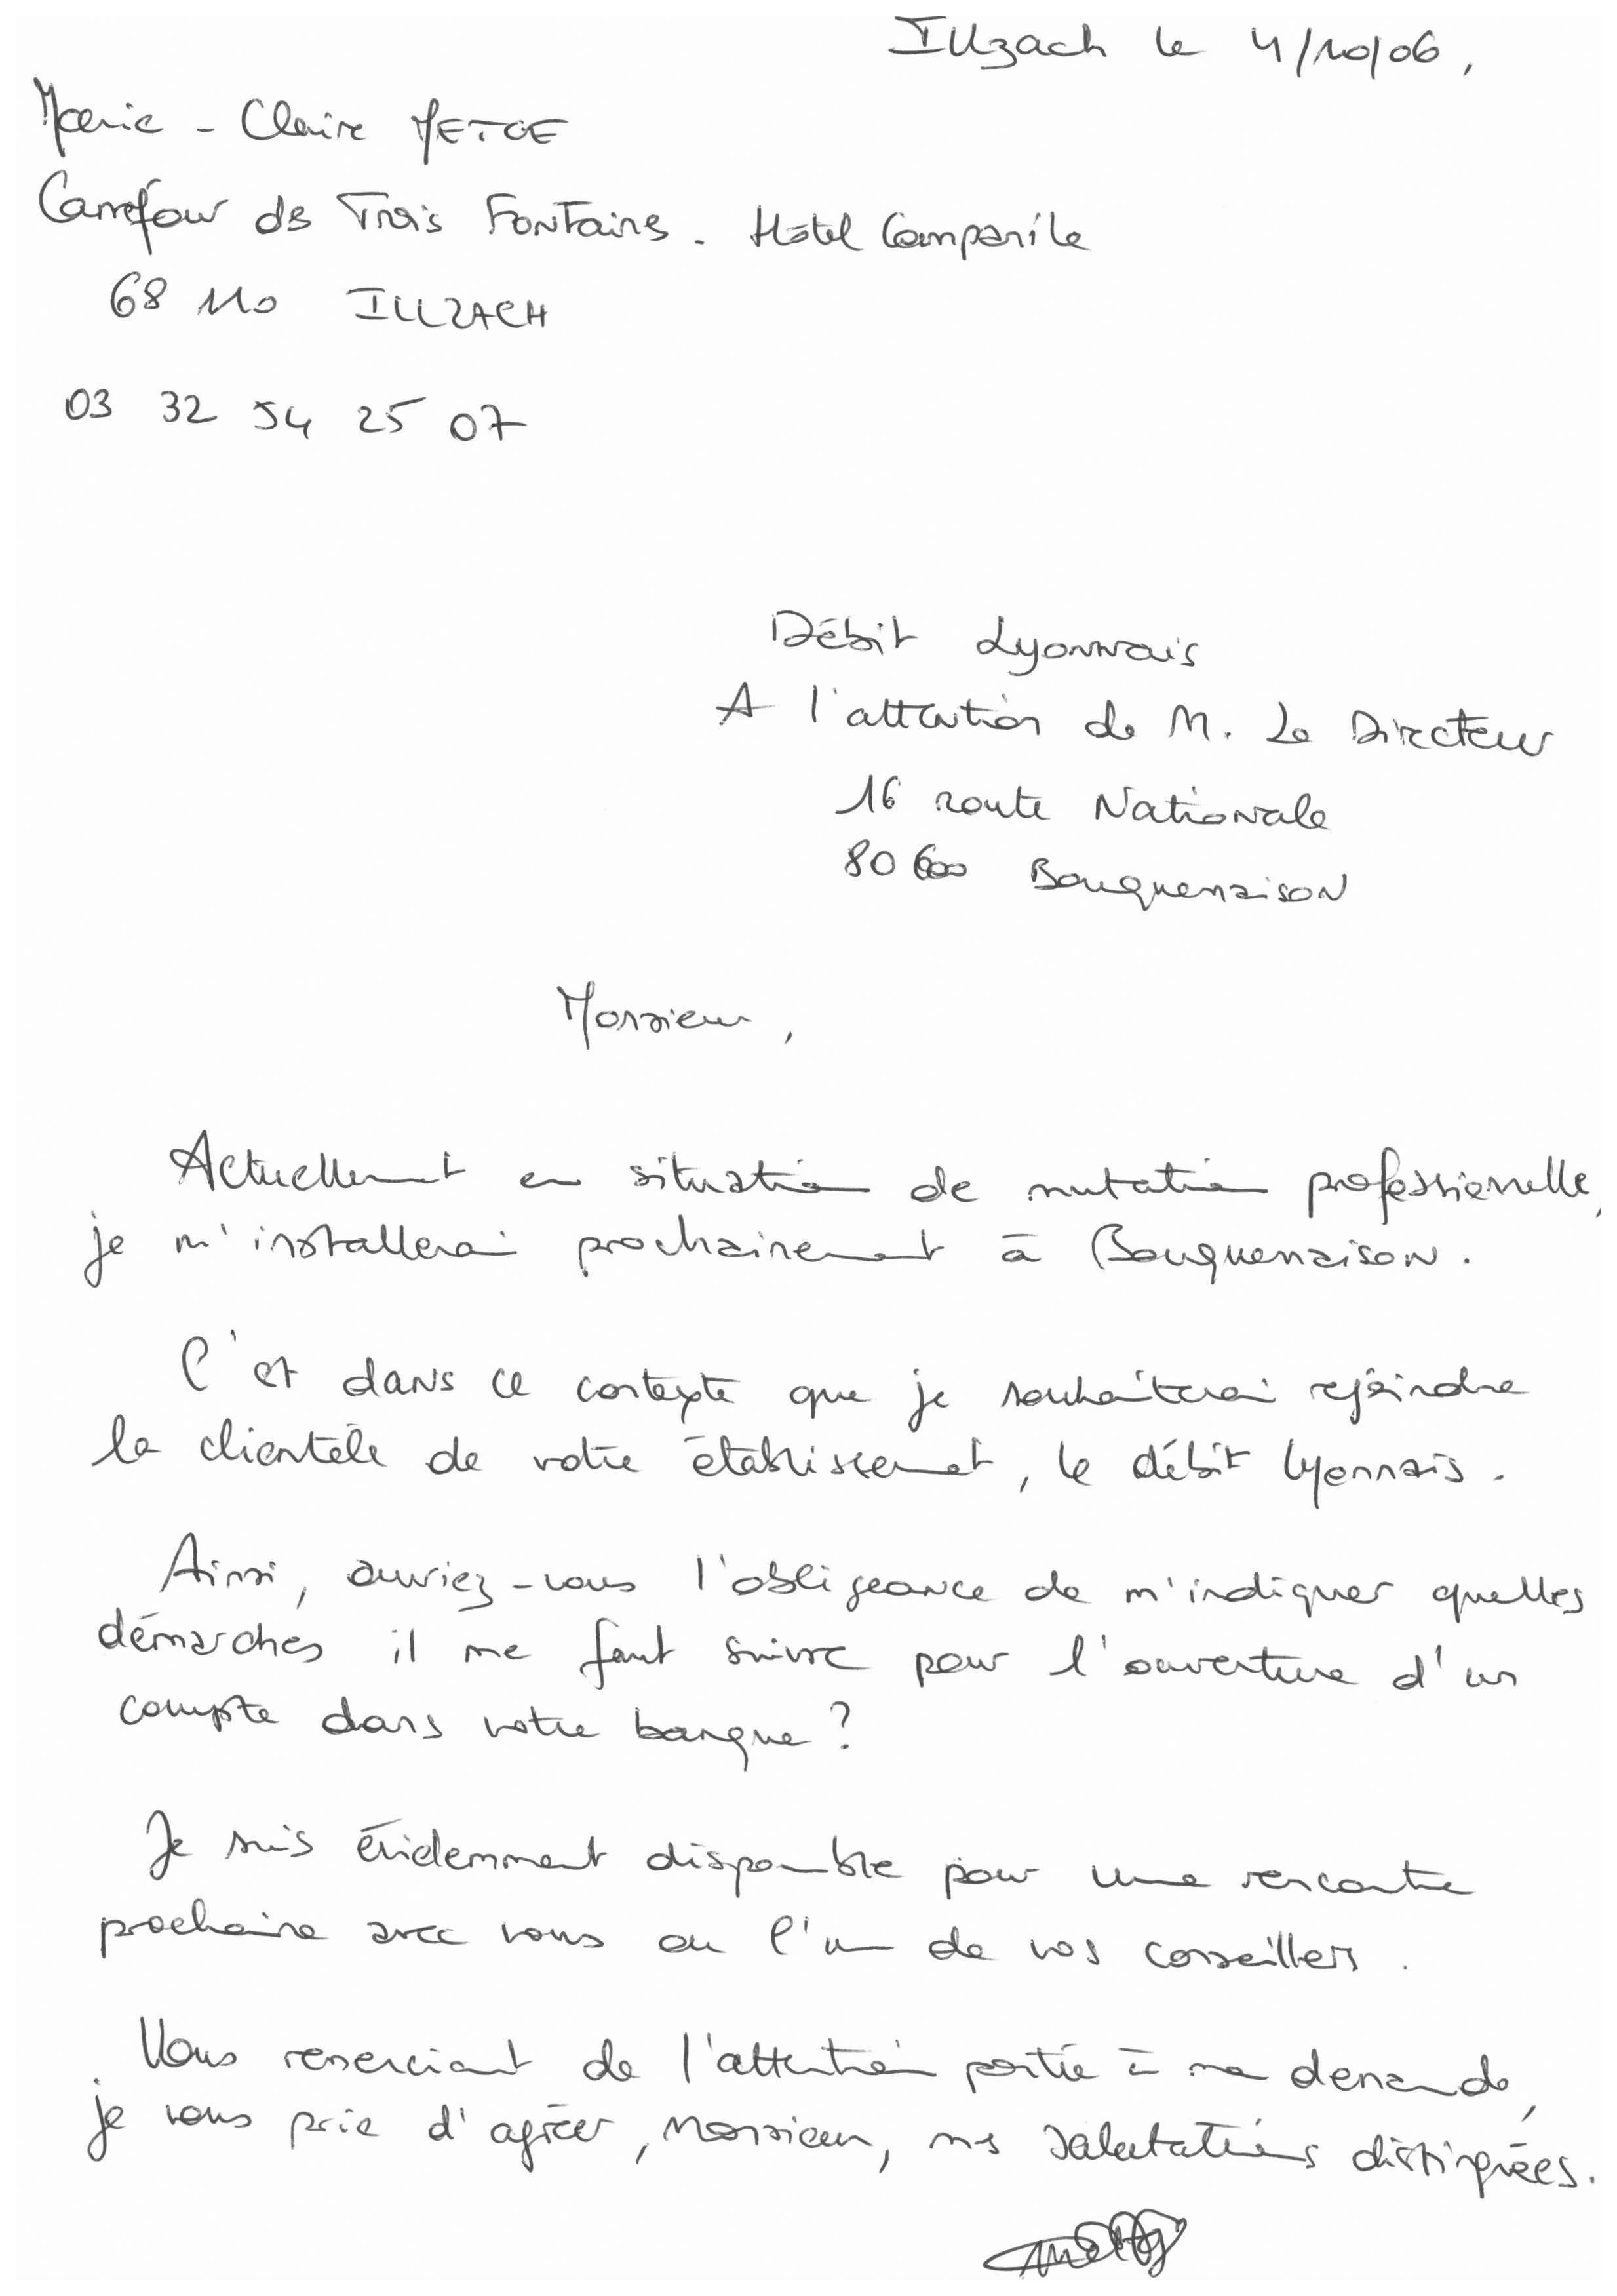 Illzach le 4/10/06,
Marie - Claire METGE
Carrefour des Trois Fontaines. Hôtel Campanile
68 110 ILLZACH
03 32 54 25 07
Débit Lyonnais
A l'attention de M. Le Directeur
16 route Nationale
80 600 Bouquemaison
Monsieur,
Actuellement en situation de mutation professionnelle,
je m'installerai prochainement à Bouquemaison.
C'est dans ce contexte que je souhaiterai rejoindre
la clientèle de votre établissement, le débit lyonnais.
Ainsi, auriez-vous l'obligeance de m'indiquer quelles
démarches il me faut suivre pour l'ouverture d'un
compte dans votre banque ?
Je suis évidemment disponible pour une rencontre
prochaine avec vous ou l'un de vos conseillers.
Vous remerciant de l'attention portée à ma demande,
je vous prie d'agréer, Monsieur, mes salutations distinguées.